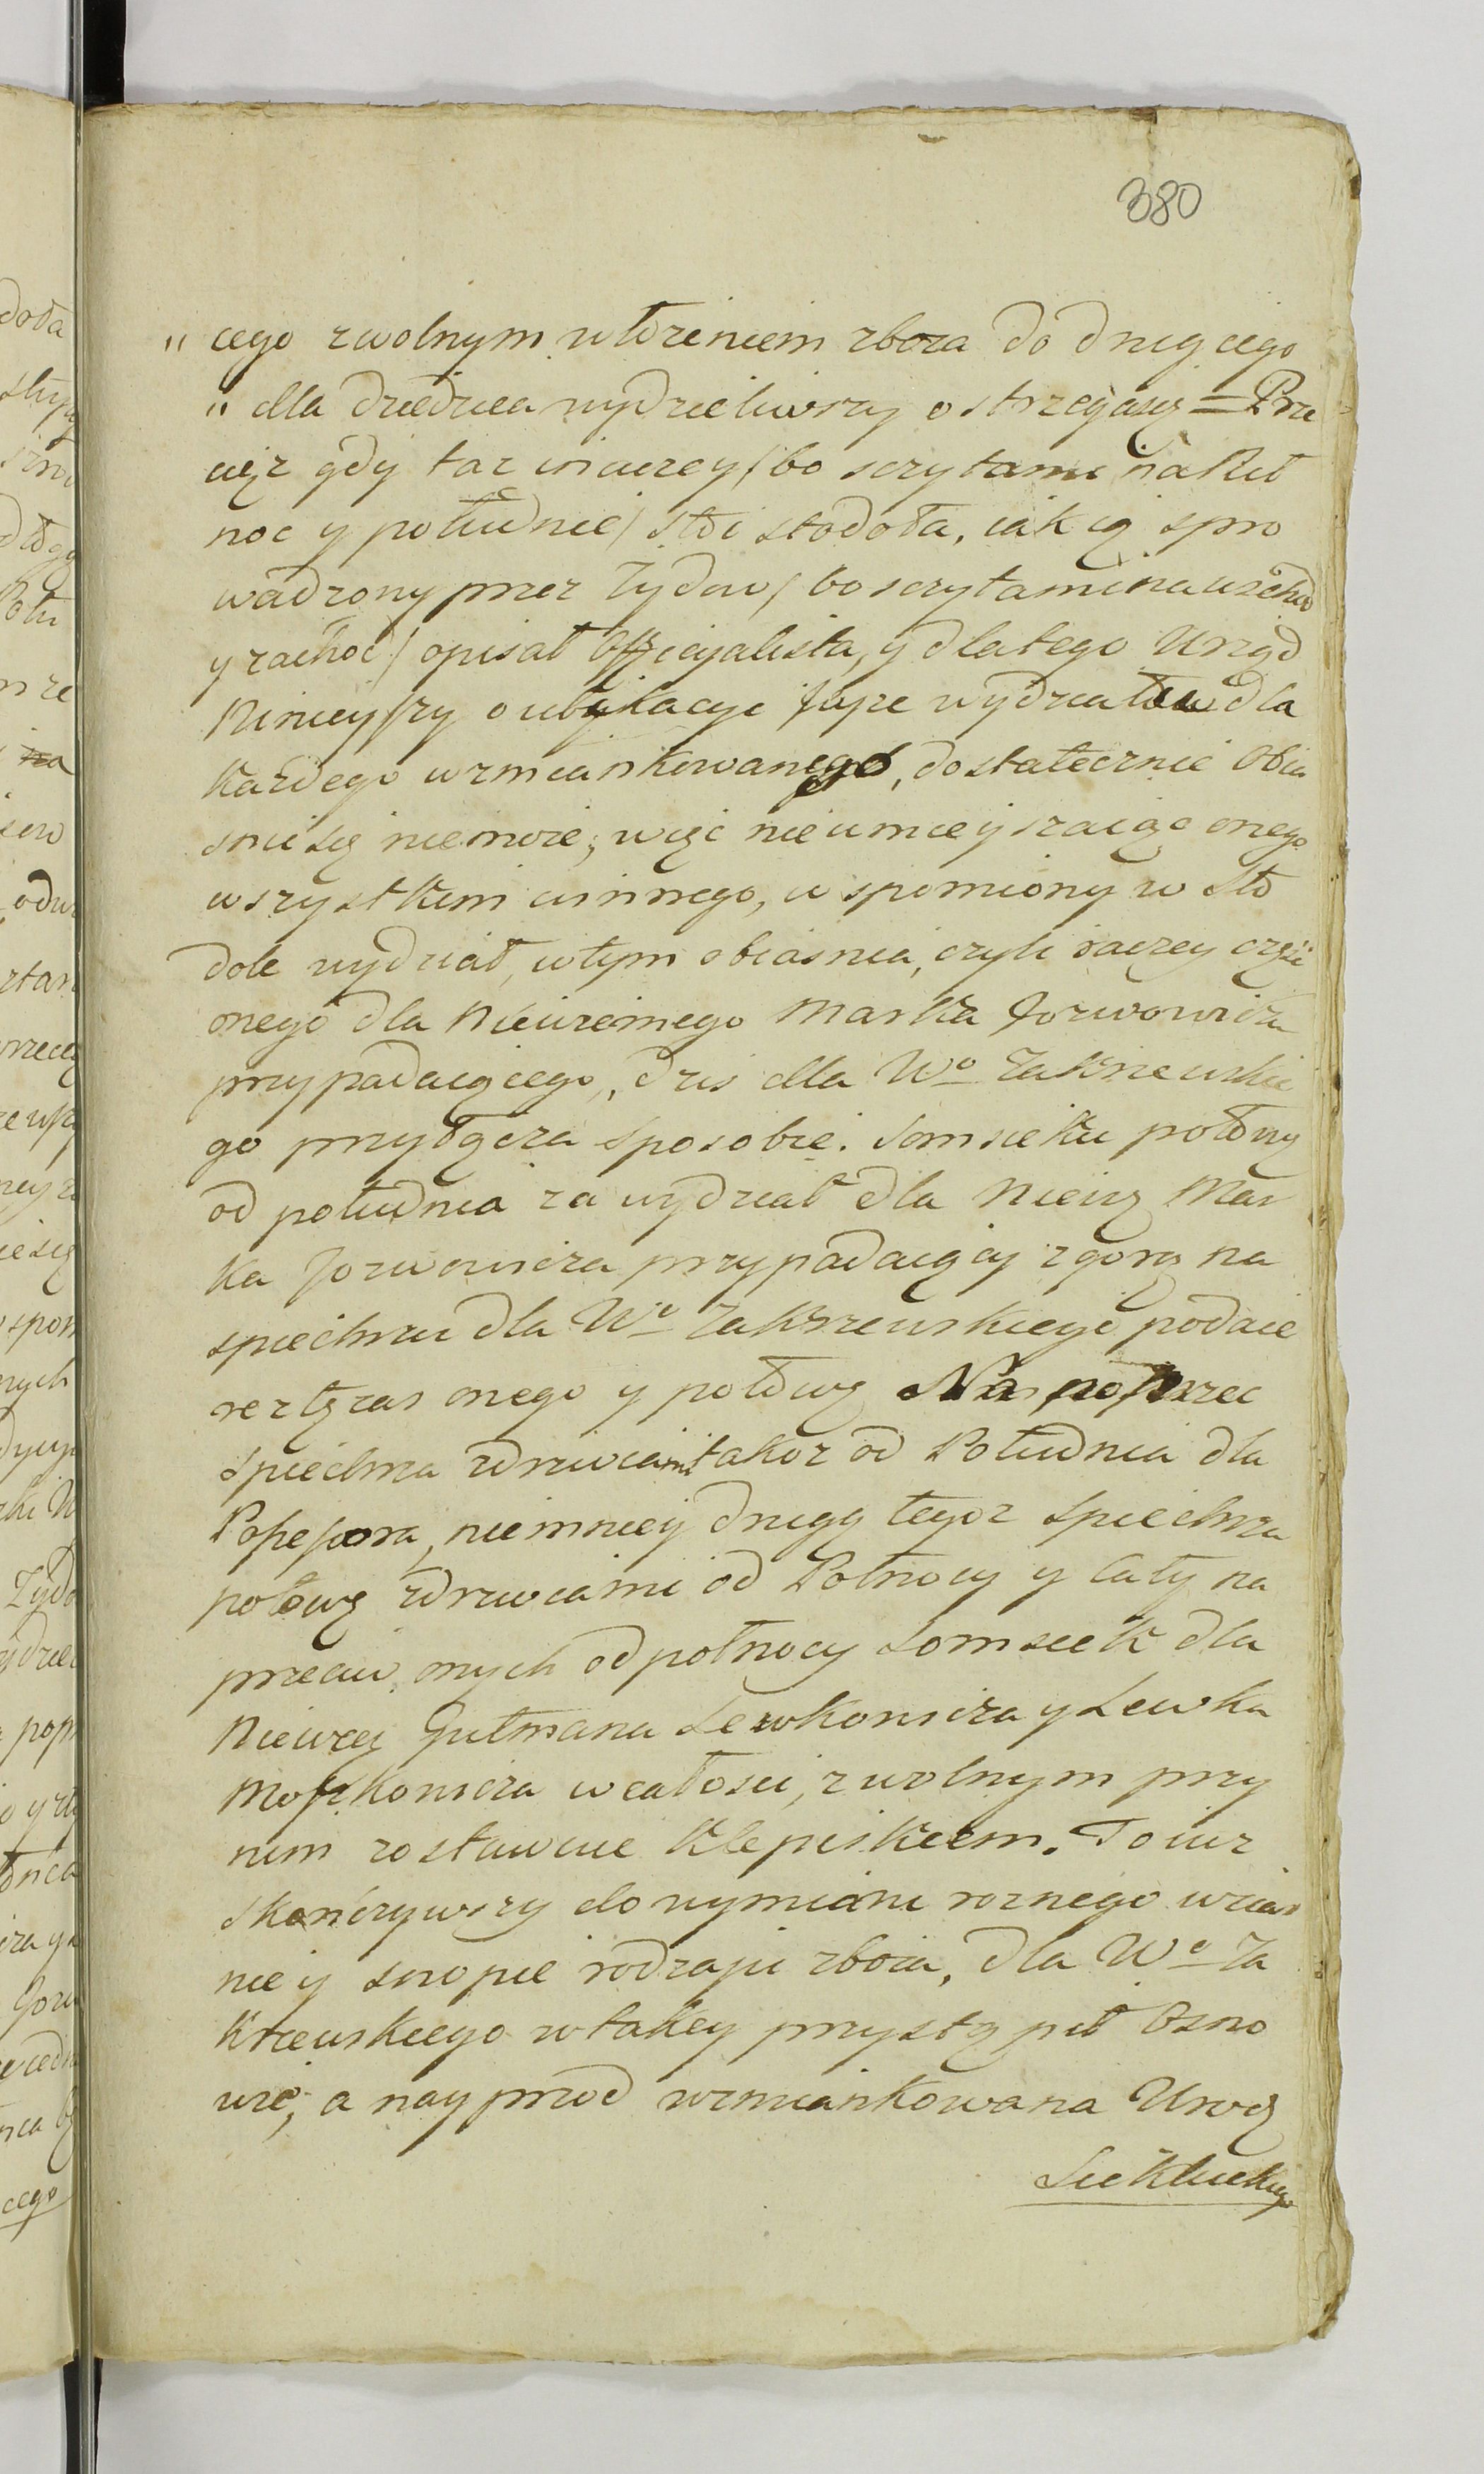 380
„ cego zwolnym włozeniem zboza do drugiego
„ dla dziedzica wydzieliwszy ostrzega się = Prze
cięz gdy taz inaczey / bo sczytami na Puł
noc y południe / stoi stodoła, iak ią spro
wadzony przez Zydow / bo sczytami na wschod
y zachod / opisał Officyalista, y dlatego Urząd
Ninieyszy o ubikacyi wydziałow dla
kazdego wzmiankowanego, dostatecznie obia
snic się niemoze; więc nieumnieyszaiąc onego
wszystkiem innego, wspomiony w Sto
dole wydział, wtym obiasnia, czyli raczey częsc
onego dla Niewiernego Marka Jozwowicza
przypadaiącego, dzis dla Wo Zakrzewskie
go przyłącza sposobie. Somsieku połowę
od południa za wydział dla Niewię Mar
ka Jozwowicza przypadaiący zgorą na
spiechrzu dla Wo Zakrzewskiego podaie
resztę zas onego y połowę Na poprzec
Spiechrza zdrzwiami takoz od Południa dla
Possessora, niemniey drugą tegoz Spiechrza
połowę zdrzwiami od Połnocy y Cały na
przeciw onych od połnocy Somsiek dla
Niewięr Gutmana Lewkowicza y Lewka
Moszkowicza wcałosci, zwolnym przy
nim zostawuie Klepiskiem. To iuz
skonczywszy do wymiani roznego wziar
nie y snopie rodzaju zboza, dla Wo Za
Krzewskiego wtakey przystąpił Osno
wie; a nayprzod wzmiankowana Urodz
Siekluckiego